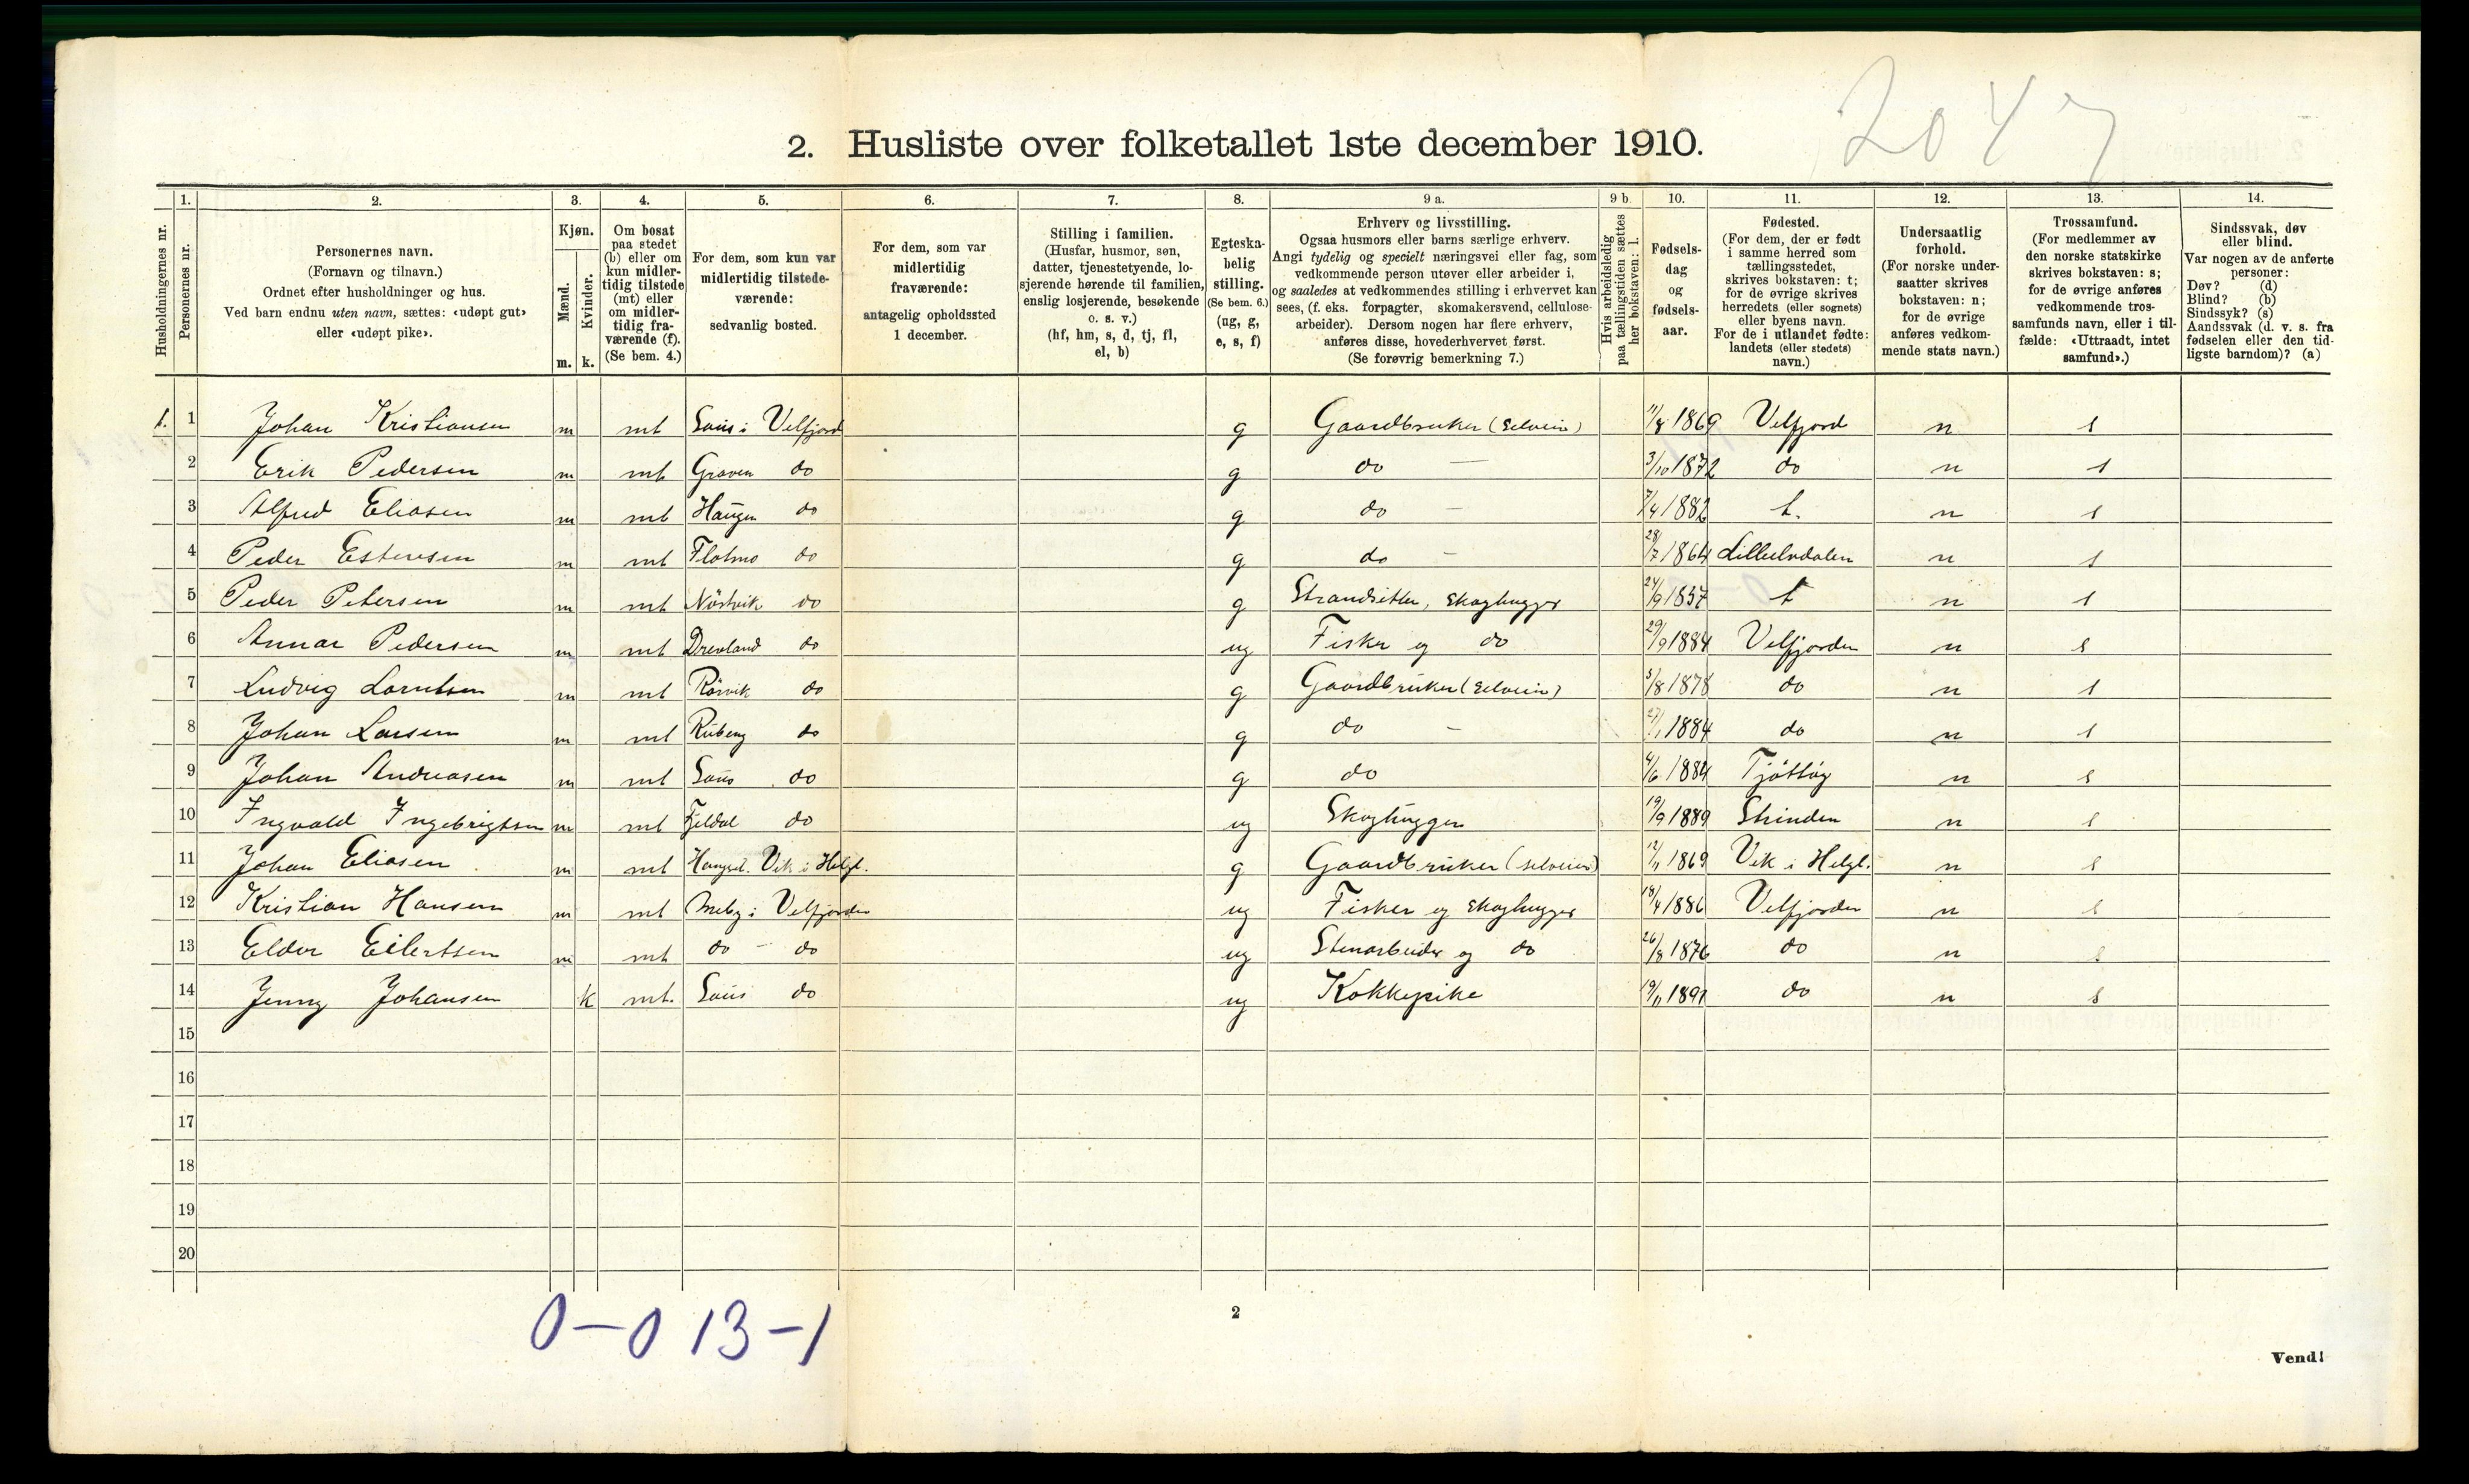 2047
2. Husliste over folketallet 1ste december 1910.
1. 2. 3. 4. 5. 6. 7. 8. 9 a. 9 b. 10. 11. 12. 13. 14.
Husholdningernes nr.
Personernes nr.
Personernes navn.
(Fornavn og tilnavn.)
Ordnet efter husholdninger og hus.
Ved barn endnu uten navn, sættes: «udøpt gut»
eller «udøpt pike».
Kjøn.
Mænd.
Kvinder.
m. k.
Om bosat
paa stedet
(b) eller om
kun midler-
tidig tilstede
(mt) eller
om midler-
tidig fra-
værende (f).
(Se bem. 4.)
For dem, som kun var
midlertidig tilstede-
værende:
sedvanlig bosted.
For dem, som var
midlertidig
fraværende:
antagelig opholdssted
1 december.
Stilling i familien.
(Husfar, husmor, søn,
datter, tjenestetyende, lo-
sjerende hørende til familien,
enslig losjerende, besøkende
o. s. v.)
(hf, hm, s, d, tj, fl,
el, b)
Egteska-
belig
stilling.
(Se bem. 6.)
(ug, g,
e, s, f)
Erhverv og livsstilling.
Ogsaa husmors eller barns særlige erhverv.
Angi tydelig og specielt næringsvei eller fag, som
vedkommende person utøver eller arbeider i,
og saaledes at vedkommendes stilling i erhvervet kan
sees, (f. eks. forpagter, skomakersvend, cellulose-
arbeider). Dersom nogen har flere erhverv,
anføres disse, hovederhvervet først.
(Se forøvrig bemerkning 7.)
Hvis arbeidsledig
paa tællingstiden sættes
her bokstaven: l.
Fødsels-
dag
og
fødsels-
aar.
Fødested.
(For dem, der er født
i samme herred som
tællingsstedet,
skrives bokstaven: t;
for de øvrige skrives
herredets (eller sognets)
eller byens navn.
For de i utlandet fødte:
landets (eller stedets)
navn.)
Undersaatlig
forhold.
(For norske under-
saatter skrives
bokstaven: n;
for de øvrige
anføres vedkom-
mende stats navn.)
Trossamfund.
(For medlemmer av
den norske statskirke
skrives bokstaven: s;
for de øvrige anføres
vedkommende tros-
samfunds navn, eller i til-
fælde: «Uttraadt, intet
samfund».)
Sindssvak, døv
eller blind.
Var nogen av de anførte
personer:
Døv? (d)
Blind? (b)
Sindssyk? (s)
Aandssvak (d. v. s. fra
fødselen eller den tid-
ligste barndom)? (a)
1. 1 Johan Kristiansen m mt Saus i Velfjord g Gaardbruker (Selveier) 11/8 1869 Velfjord n s
2 Erik Pedersen m mt Graven do g do — 3/10 1872 do n s
3 Alfred Eliasen m mt Haugen do g do — 7/4 1882 t. n s
4 Peder Estensen m mt Flotmo do g do — 28/7 1864 Lilleelvdalen n s
5 Peder Petersen m mt Nöstvik do g Strandsitter, Skoghugger 24/9 1857 t n s
6 Annar Pedersen m mt Drevland do ug Fisker og do 29/9 1884 Velfjorden n s
7 Ludvig Larntsen m mt Rörvik do g Gaardbruker (Selveier) 5/8 1878 do n s
8 Johan Larsen m mt Ruberg do g do — 27/1 1884 do n s
9 Johan Andreasen m mt Saus do g do 4/6 1884 Tjöttög n s
10 Ingvald Ingebrigtsen m mt Fjeldal do ug Skoghugger 19/9 1889 Strinden n s
11 Johan Eliasen m mt Vik i Helgl. g Gaardbruker (selveier) 12/11 1869 Vik i Helgl. n s
12 Kristian Hansen m mt Meby i Velfjorden ug Fisker og Skoghugger 18/4 1886 Velfjorden n s
13 Eldor Eilertsen m mt do — do ug Stenarbeider og do 26/8 1876 do n s
14 Jenny Johansen k mt. Saus do ug Kokkepike 19/11 1891 do n s
15
16
17
18
19
20
0—0 13—1
2
Vend!